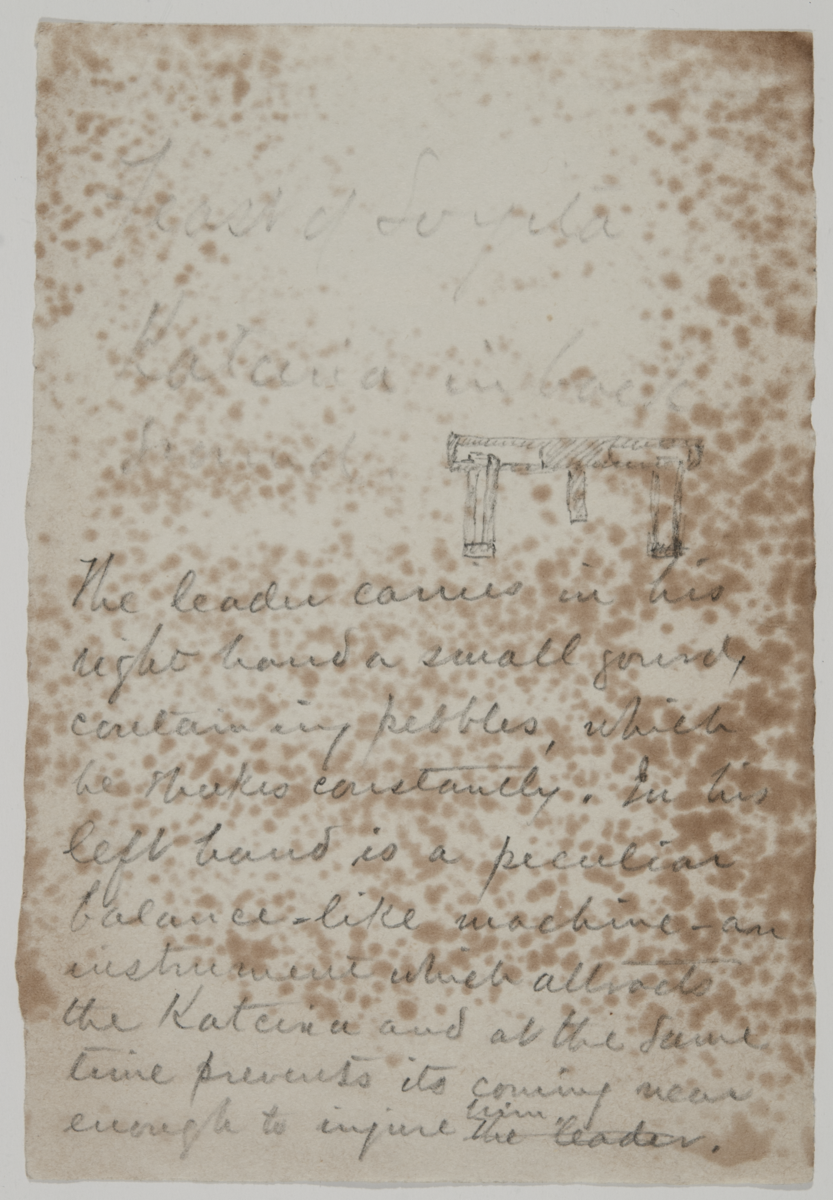 Feast of Soyila
Katcina in back
The leader carries in his
right hand a small gourd,
containing pebbles, which
he shakes constantly. In his
left hand is a peculiar
balance-like machine - an
instrument which attracts
the Katcina and at the same
time prevents its coming near
enough to injure him the leader.